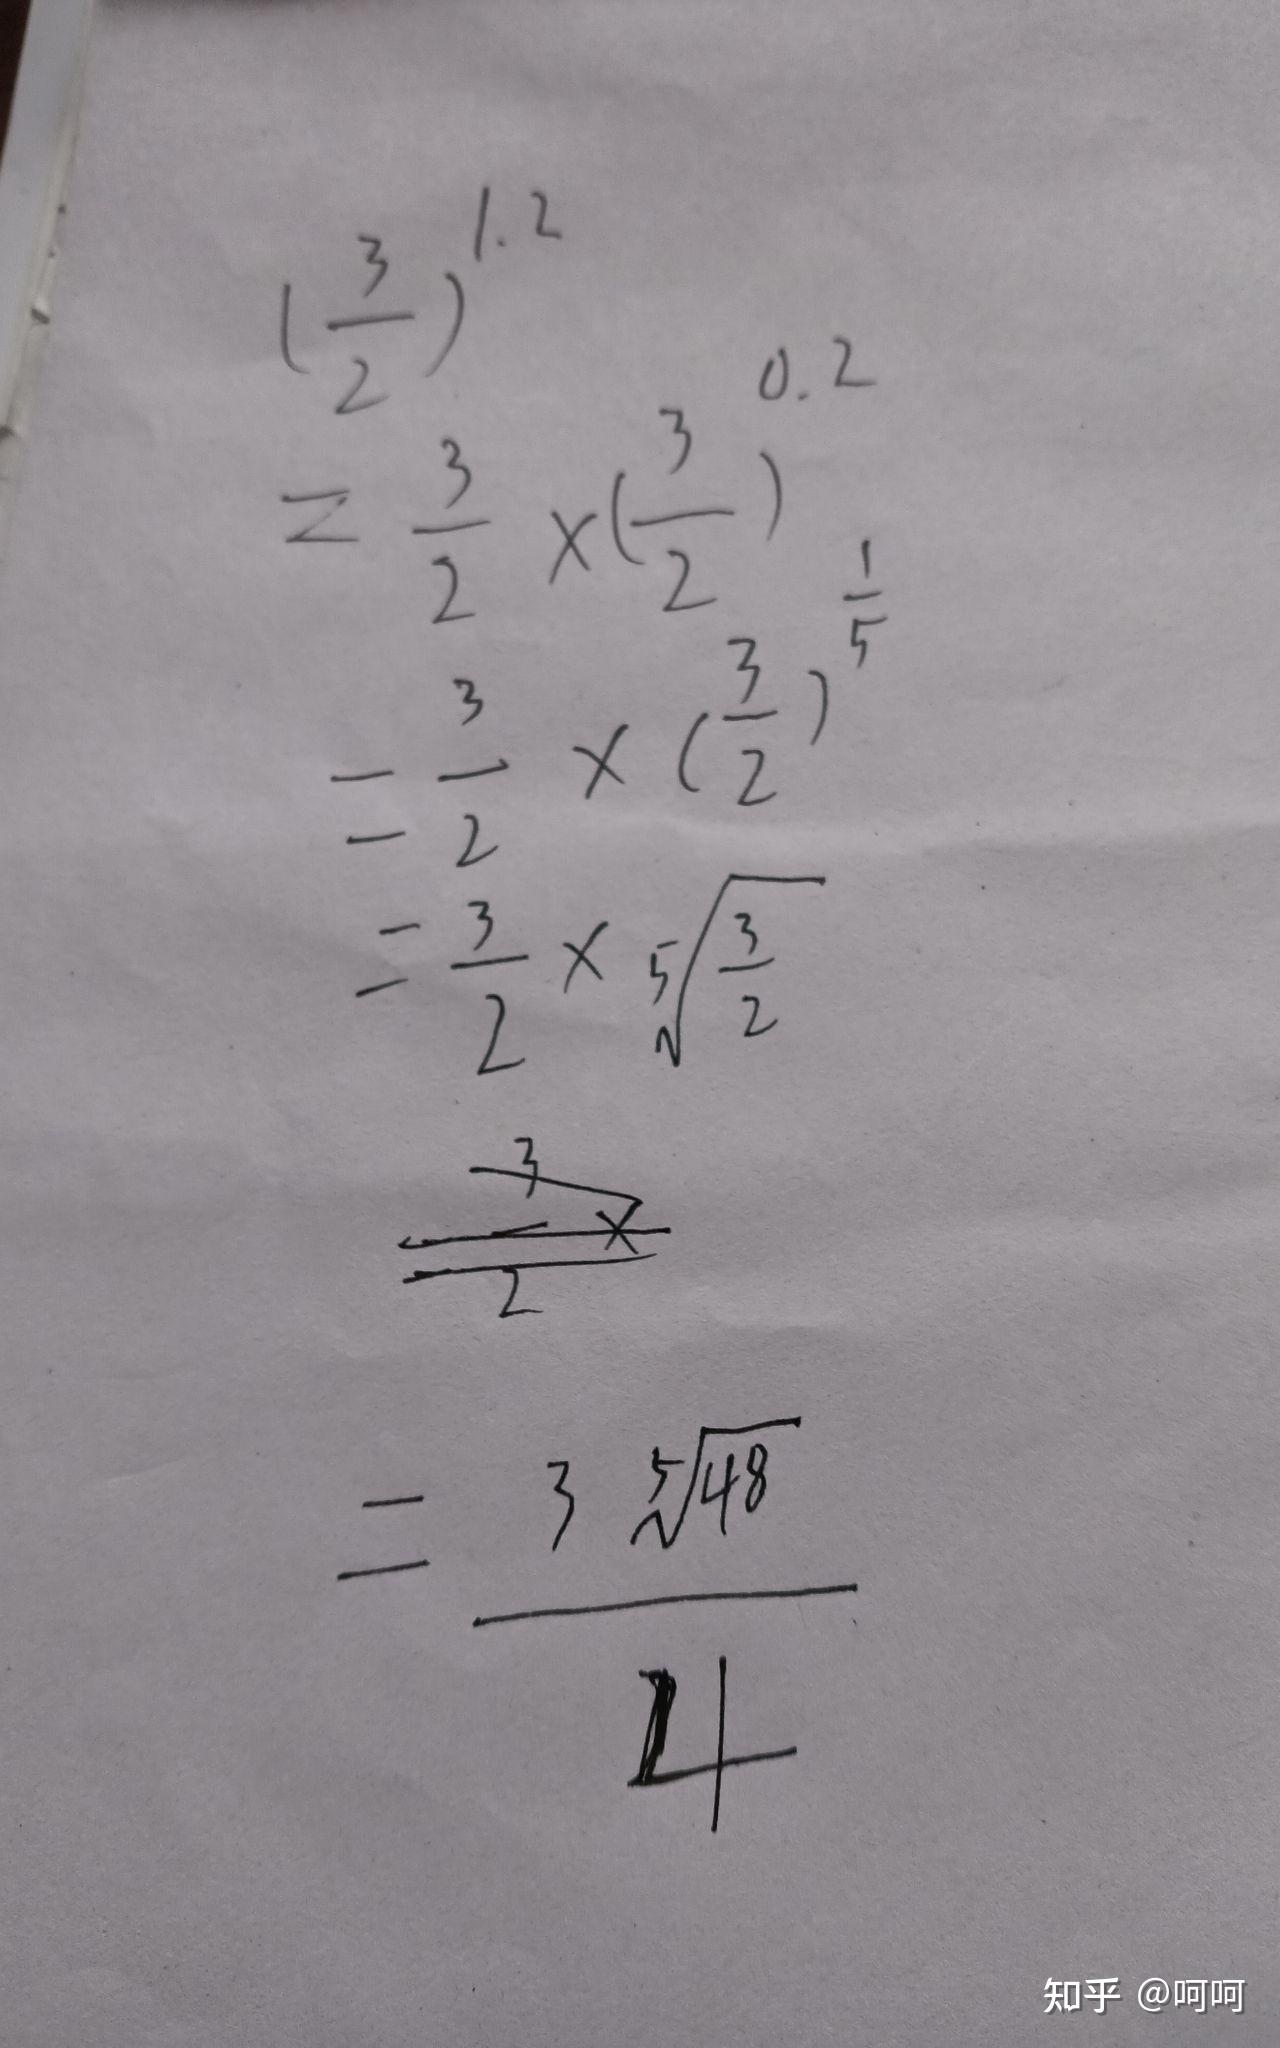 (3/2)^1.2
= 3/2 × (3/2)^0.2
= 3/2 × (3/2)^1/5
= 3/2 × ⁵√(3/2)
= 3/2 ×
= 3 ⁵√48 / 4
知乎 @呵呵